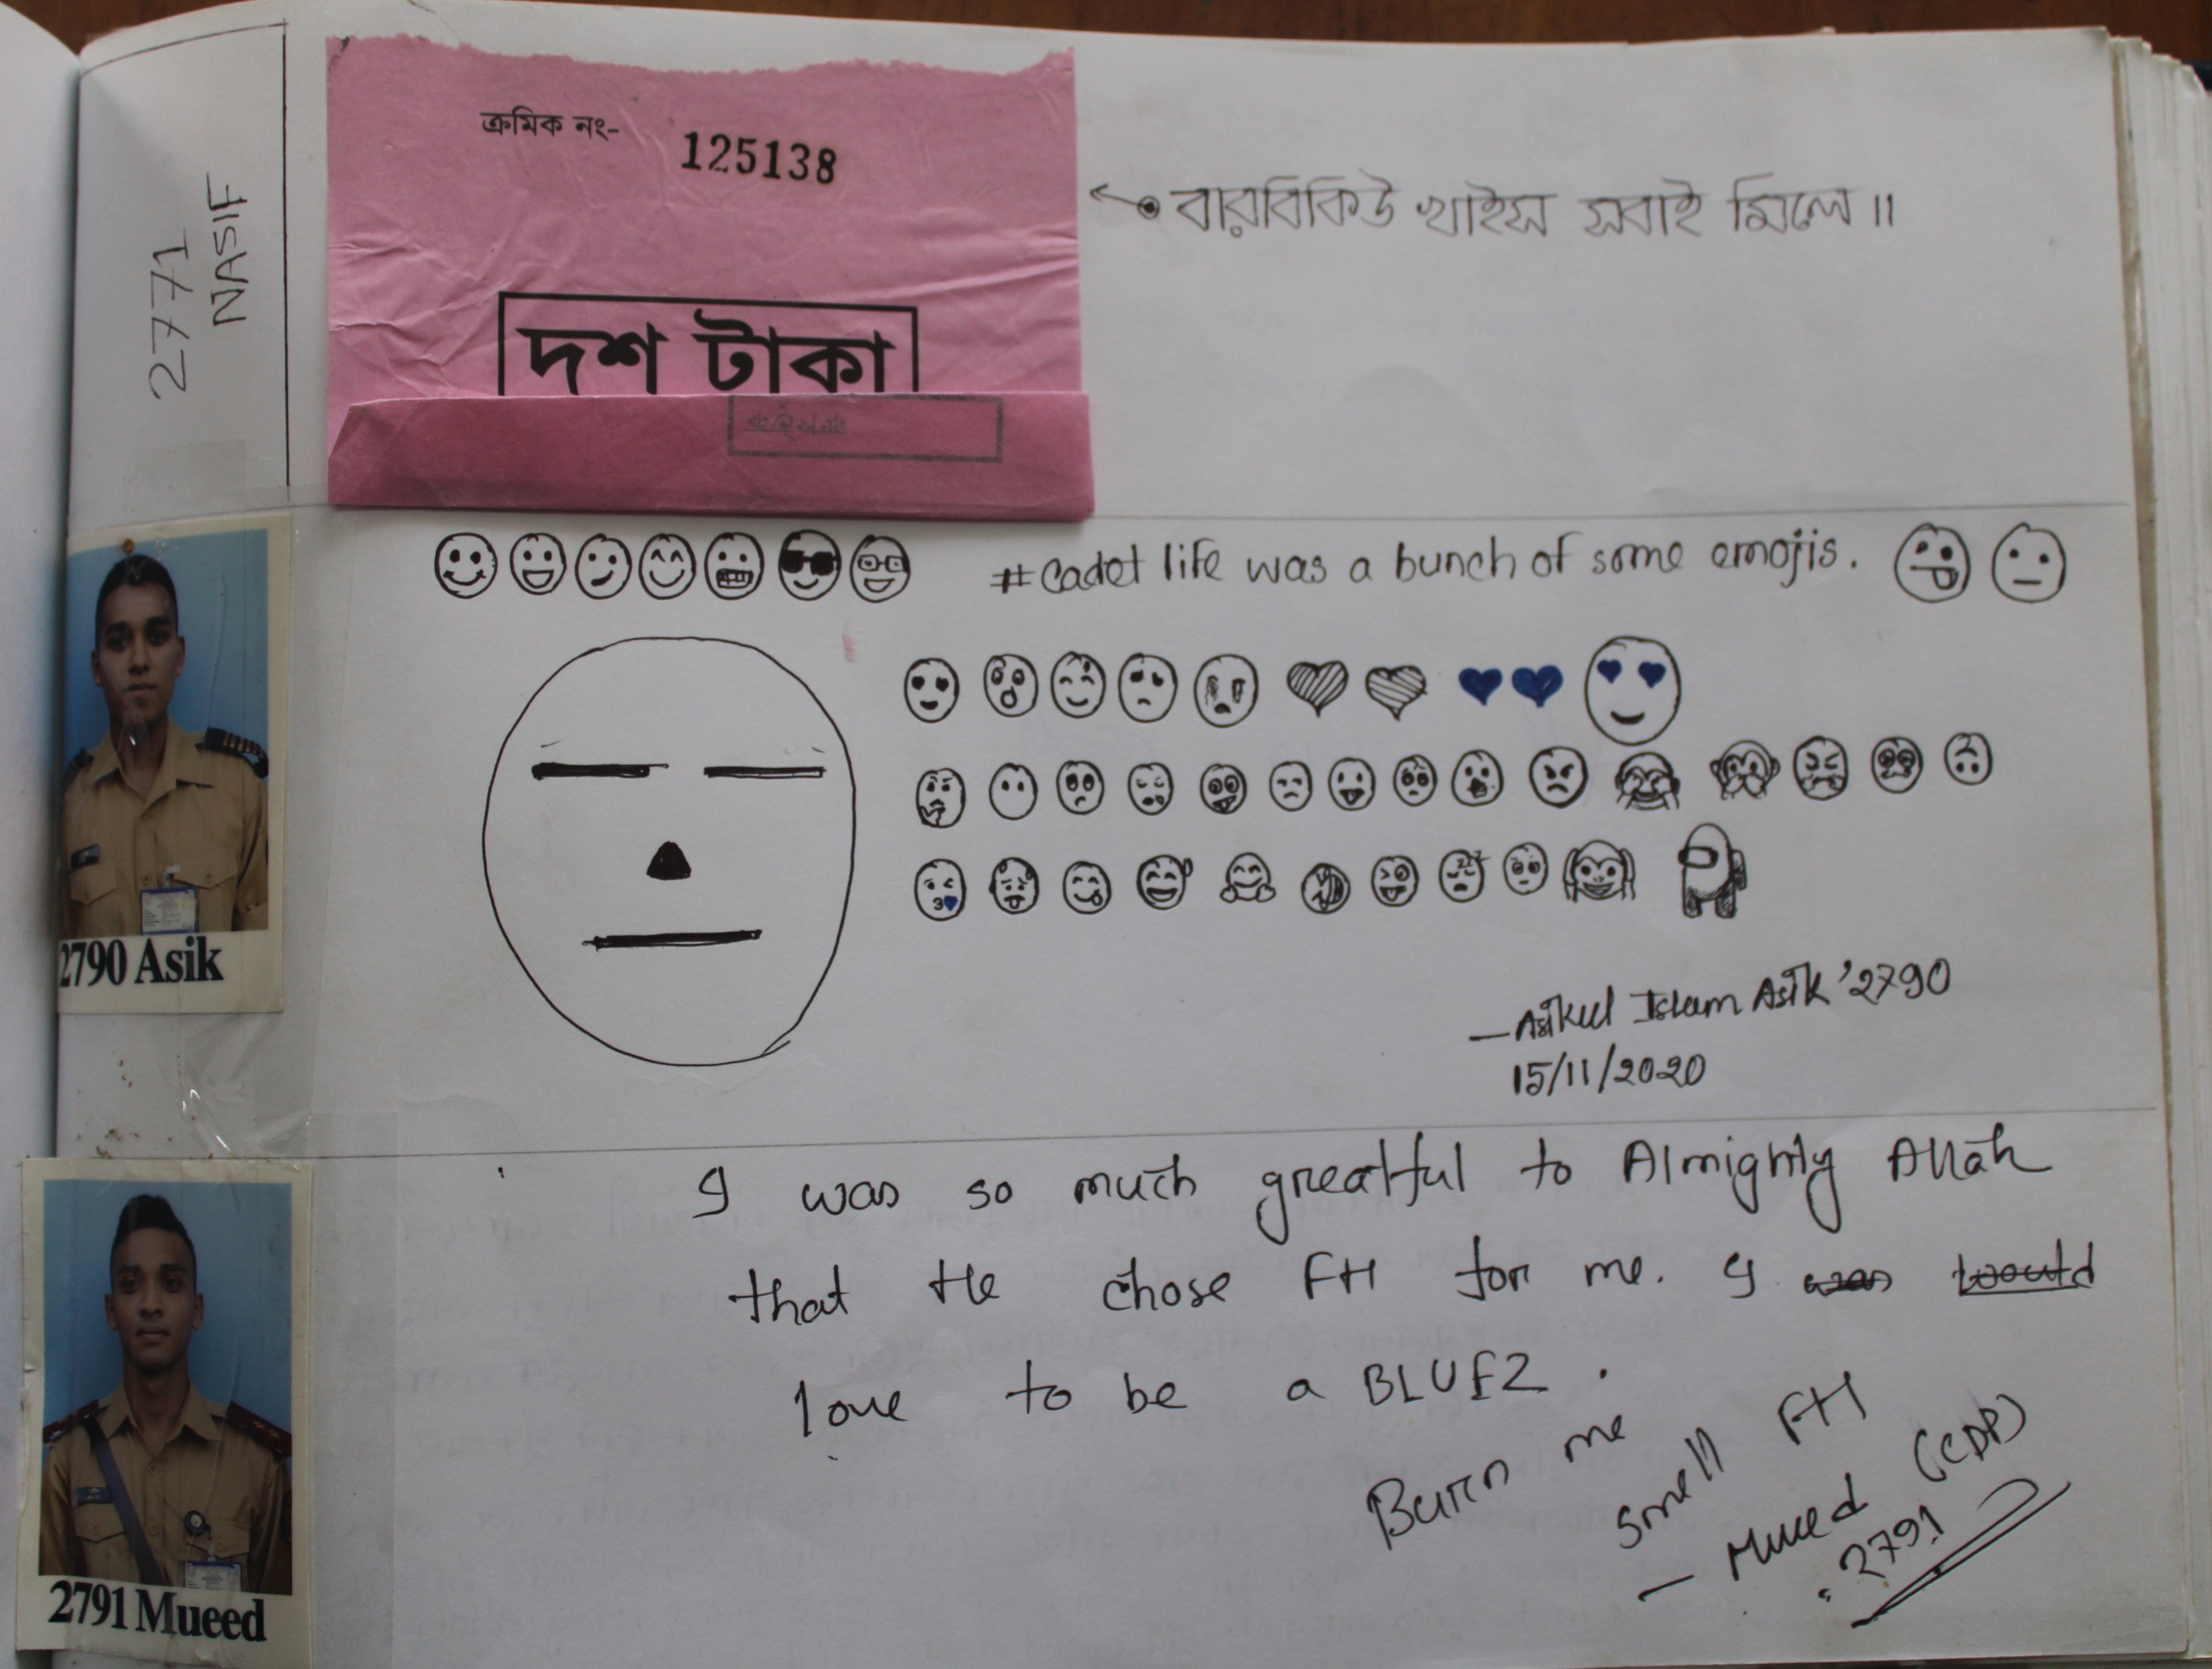 2771
NASIF
ক্রমিক নং- 125138
দশ টাকা
বারবিকিউ খাইস সবাই মিলে॥
2790 Asik
#cadet life was a bunch of some emojis.
zzz
— Asikul Islam Asik '2790
15/11/2020
2791 Mueed
I was so much greatful to Almighty Allah
that He chose FH for me. I was would
love to be a BLUEZ.
Burn me
smell FH
— Mueed (CDP)
2791